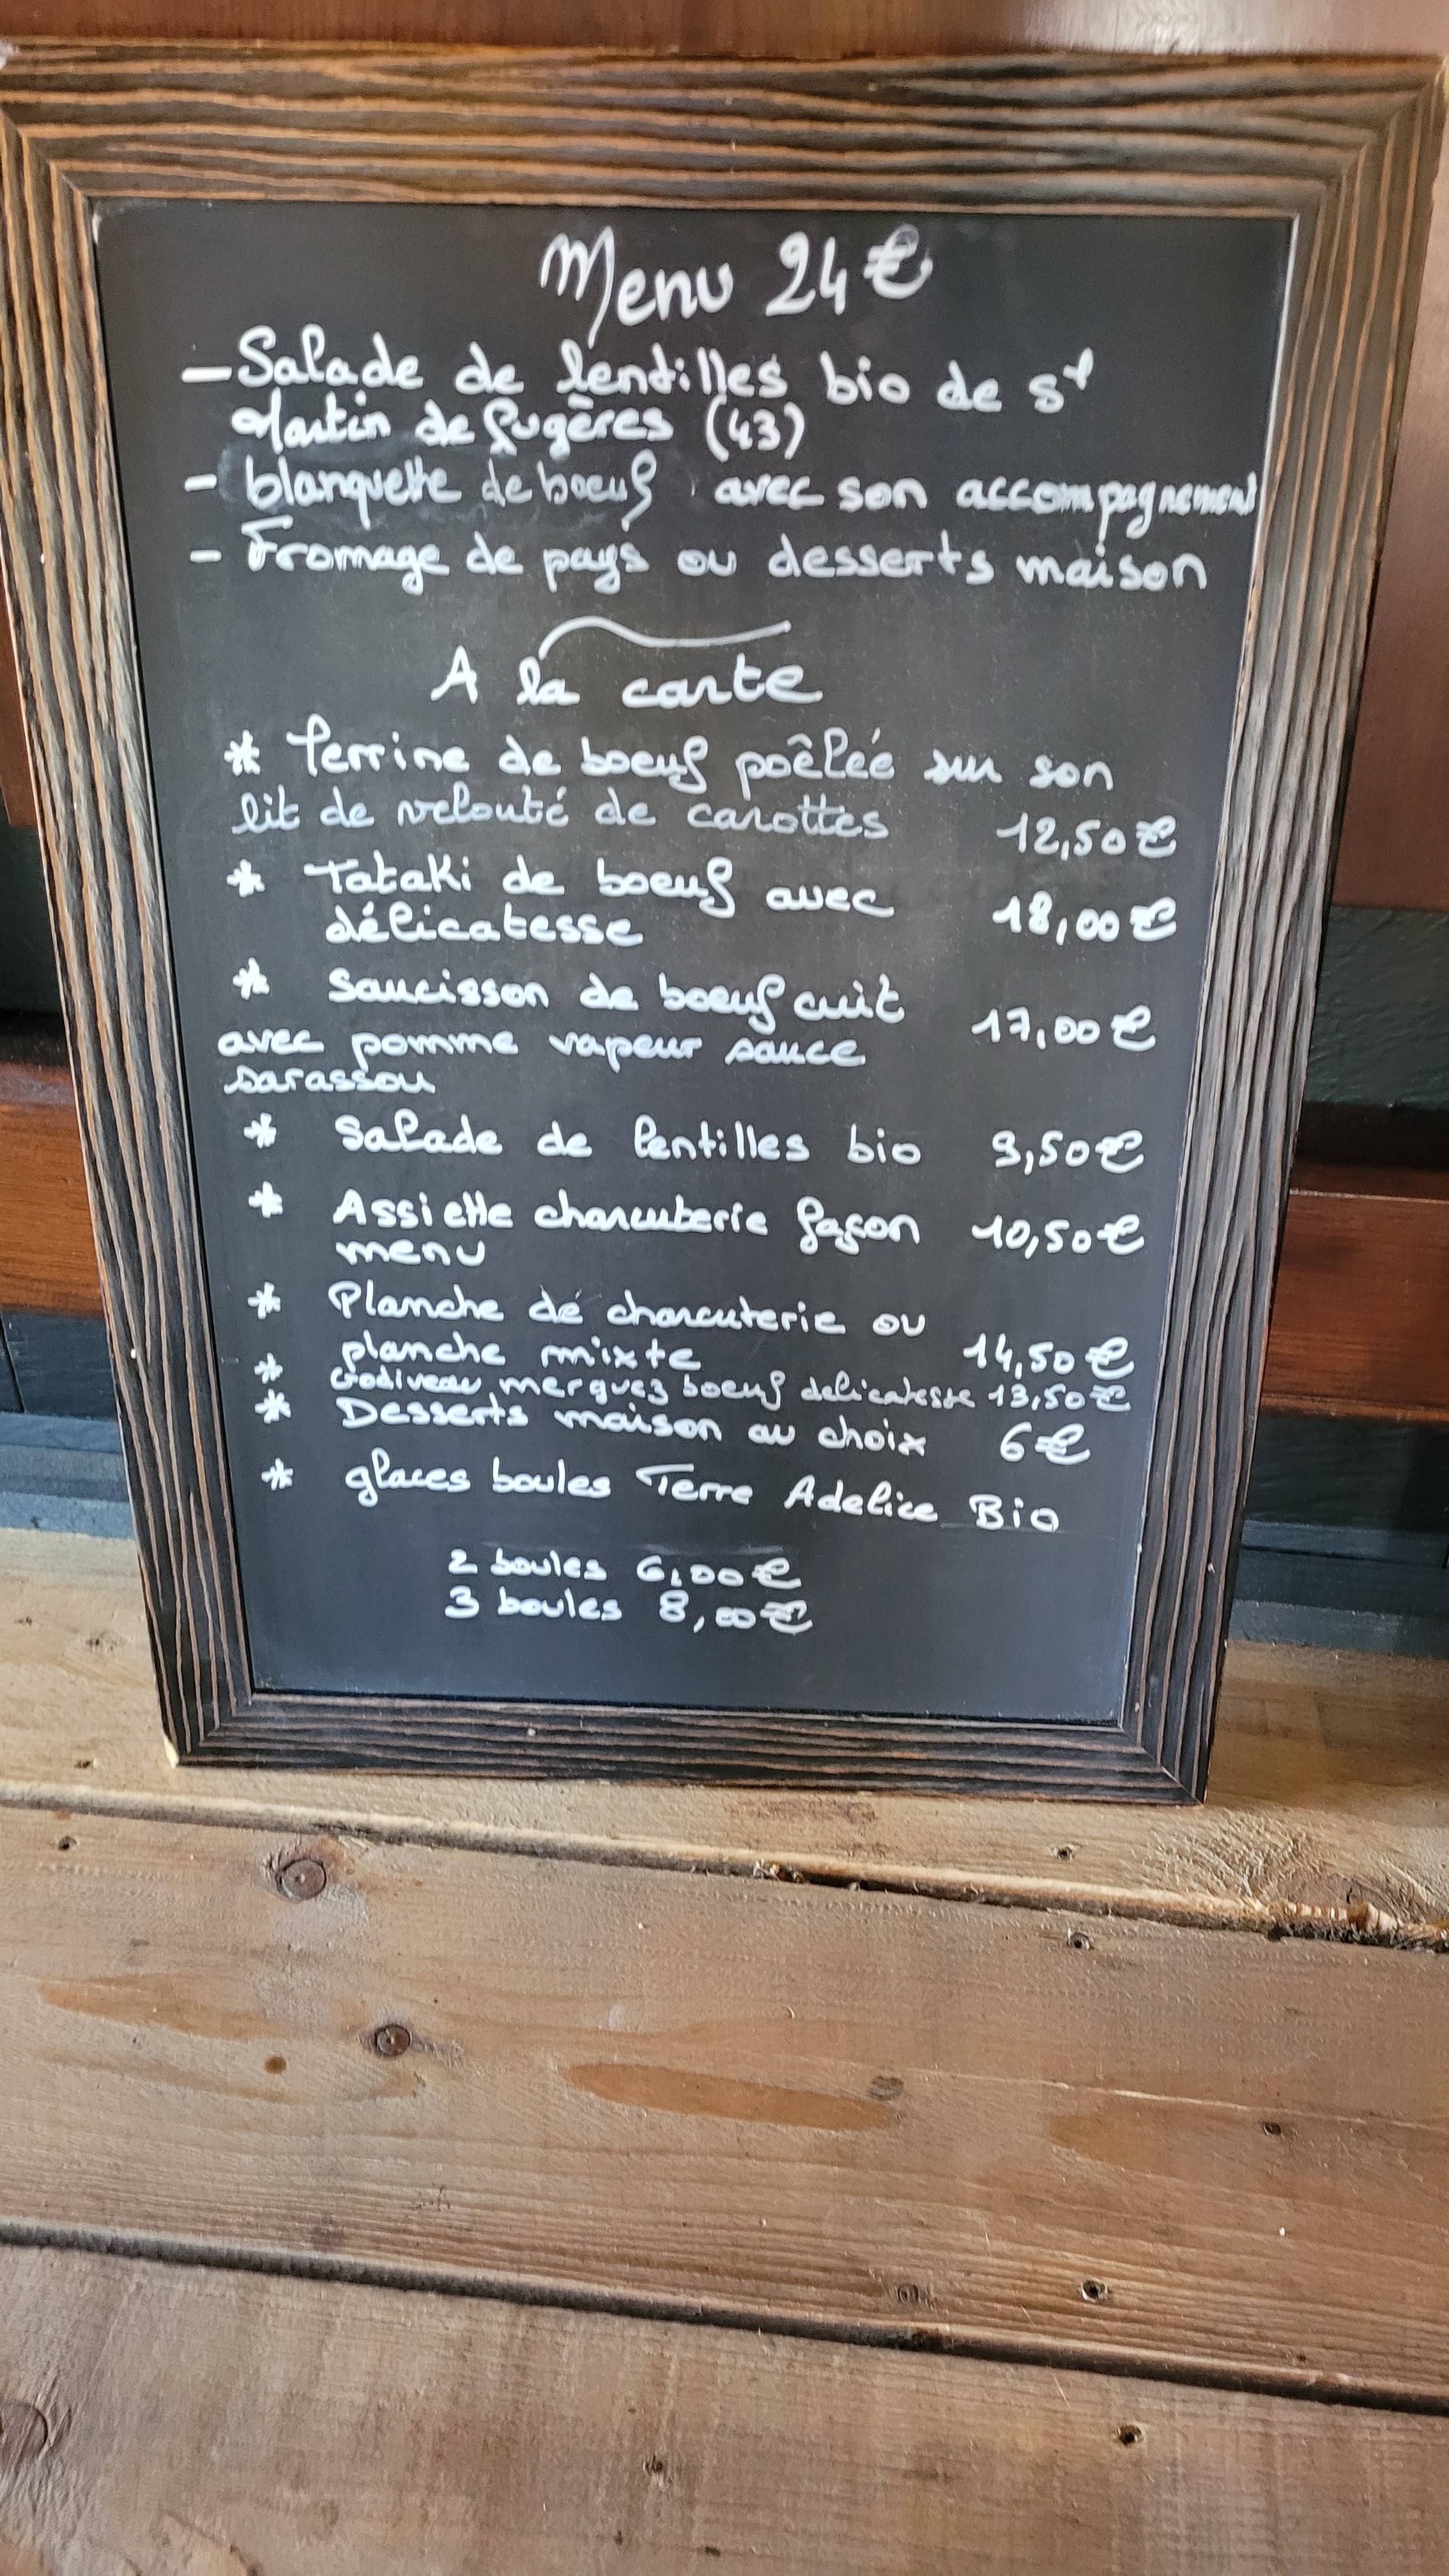 Menu 24€
- Salade de lentilles bio de St
Martin de fugères (43)
- blanquette de boeuf avec son accompagnement
- Fromage de pays ou desserts maison
A la carte
* Terrine de boeuf poêlée sur son
lit de velouté de carottes 12,50€
* Tataki de boeuf avec
délicatesse 18,00€
* Saucisson de boeuf cuit
avec pomme vapeur sauce 17,00€
sarassou
* Salade de lentilles bio 9,50€
* Assiette charcuterie façon 10,50€
menu
* Planche de charcuterie ou
planche mixte 14,50€
* Godiveau merguez boeuf délicatesse 13,50€
* Desserts maison au choix 6€
* glaces boules Terre Adelice Bio
2 boules 6,00€
3 boules 8,00€